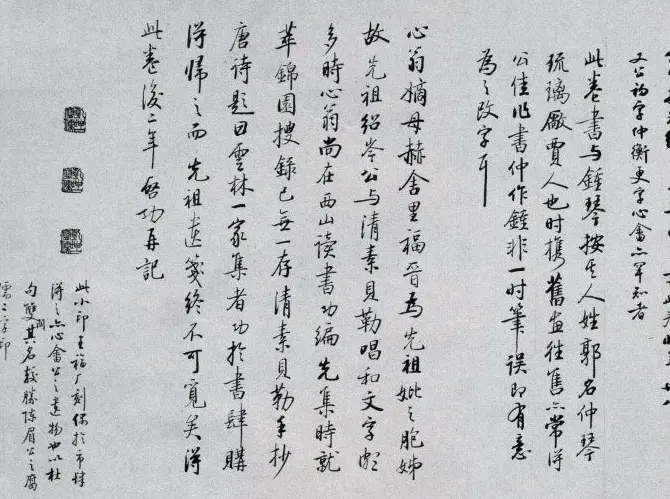 又公初字仲衡更字心畬亦罕知者
此卷書与鍾琴按其人姓郭名仲琴
琉璃廠賈人也时携舊畫往售亦常得
公佳作書仲作鍾非一时筆误即有意
為之改字耳
心翁嫡母赫舍里福晉為先祖妣之胞姊
故先祖紹岑公与清素貝勒唱和文字頗
多時心翁尚在西山读書功编先集時就
萃錦園搜録已無一存清素貝勒手抄
唐诗題曰雲林一家集者功於書肆購
得歸之而先祖遺箋终不可覓矣得
此卷後二年啓功再記
此小印王福厂刻偶於市肆
得之亦心畬公之遺物也以杜
句雙関其名較勝陳眉公之腐
儒二字印